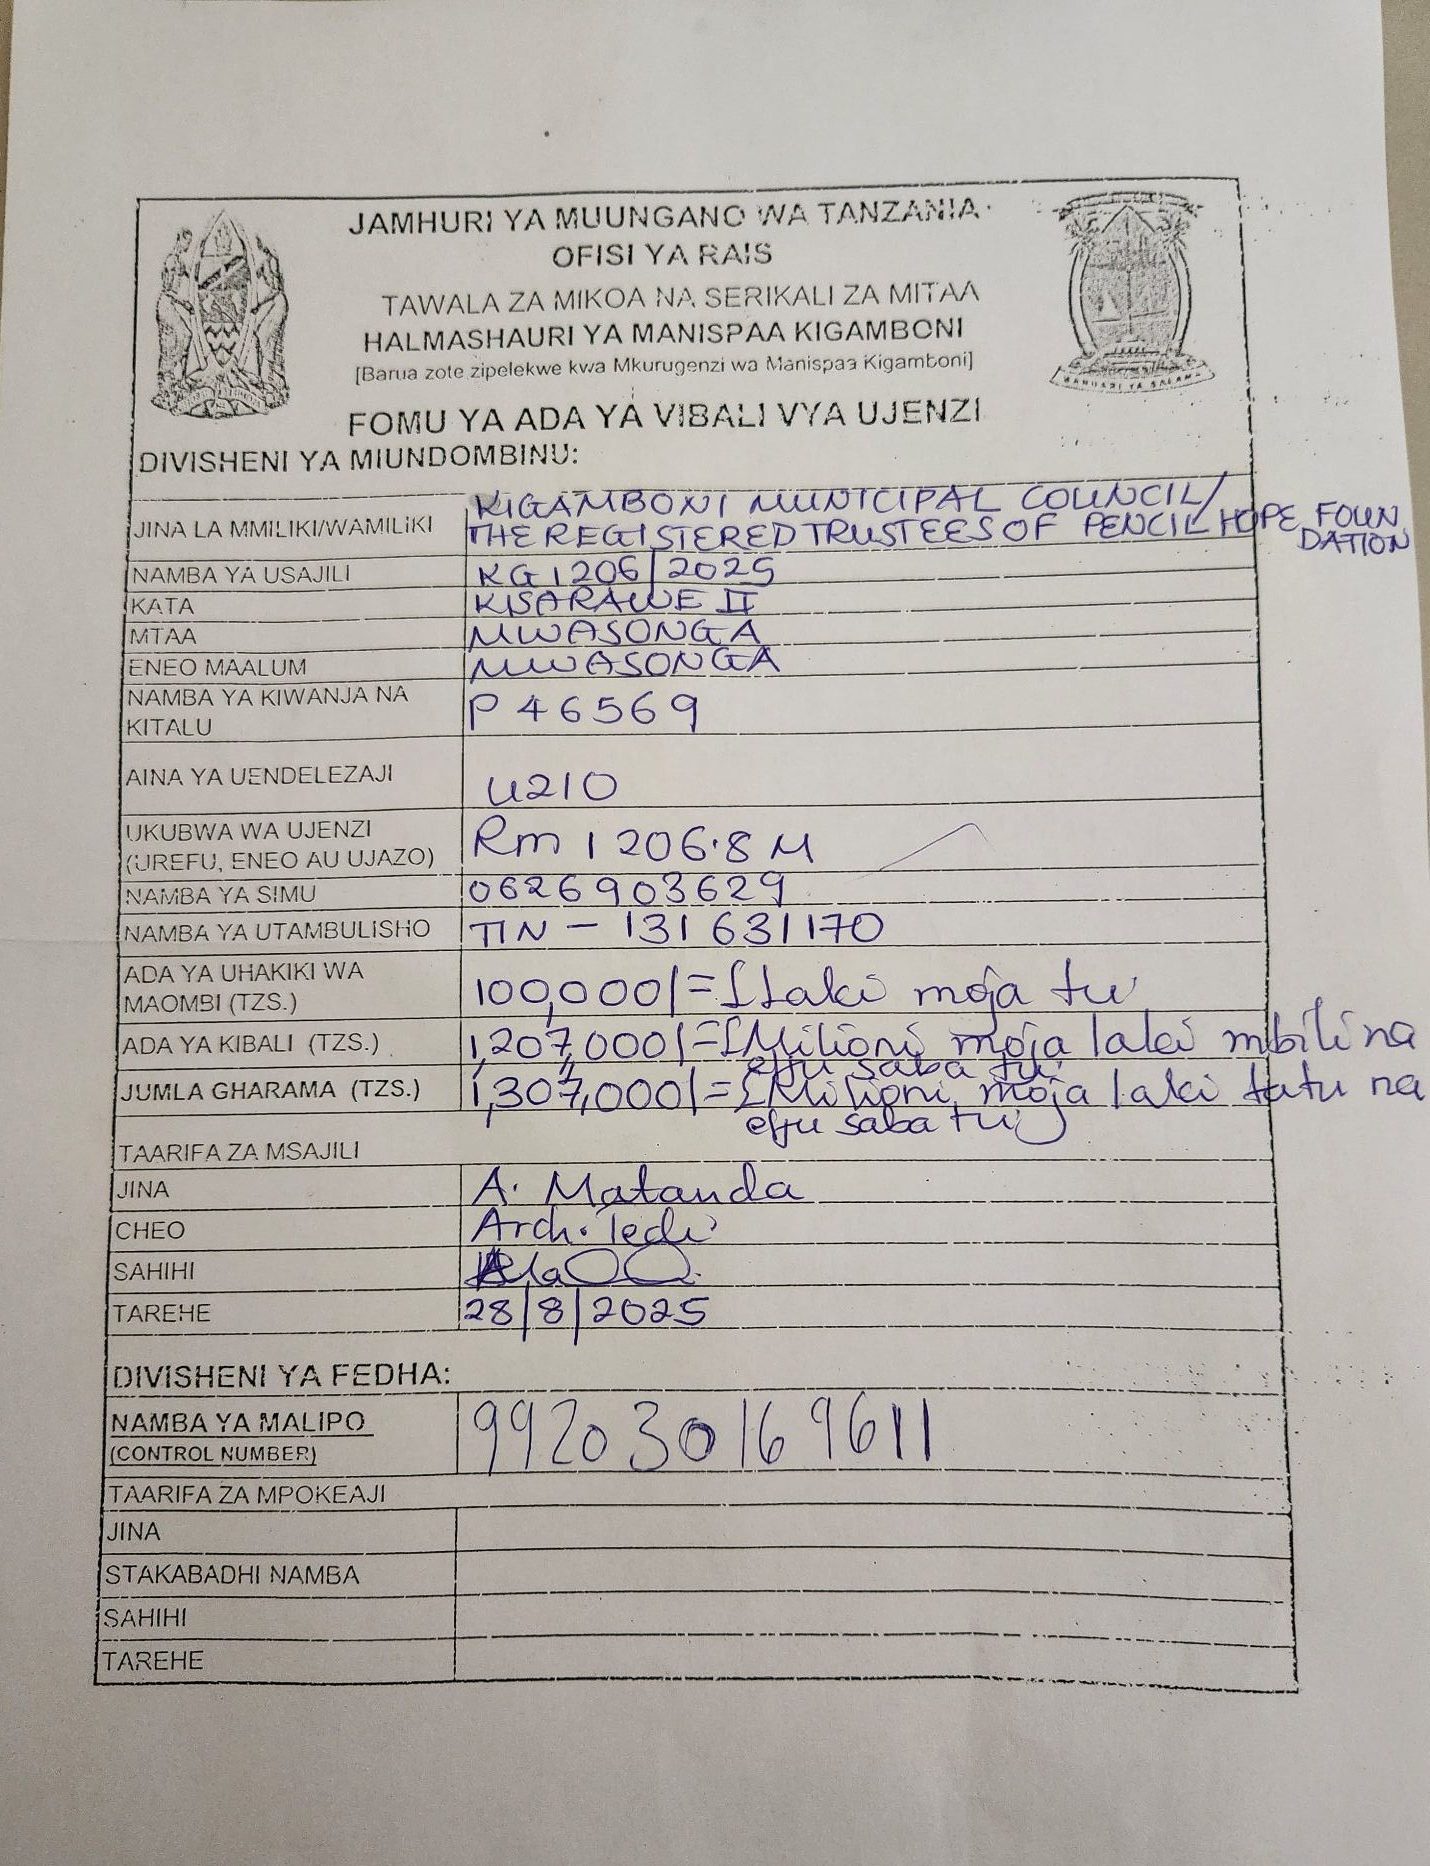 JAMHURI YA MUUNGANO WA TANZANIA
OFISI YA RAIS
TAWALA ZA MIKOA NA SERIKALI ZA MITAA
HALMASHAURI YA MANISPAA KIGAMBONI
[Barua zote zipelekwe kwa Mkurugenzi wa Manispaa Kigamboni]
FOMU YA ADA YA VIBALI VYA UJENZI
DIVISHENI YA MIUNDOMBINU:
JINA LA MMILIKI/WAMILIKI
KIGAMBONI MUNICIPAL COUNCIL/
THE REGISTERED TRUSTEES OF PENCIL HOPE FOUN
DATION
NAMBA YA USAJILI KG1206/2025
KATA KISARAWE II
MTAA MWASONGA
ENEO MAALUM MWASONGA
NAMBA YA KIWANJA NA
KITALU
P 46569
AINA YA UENDELEZAJI
UZIO
UKUBWA WA UJENZI
(UREFU, ENEO AU UJAZO)
Rm 1206.8 M
NAMBA YA SIMU 0626903629
NAMBA YA UTAMBULISHO TIN - 131631170
ADA YA UHAKIKI WA
MAOMBI (TZS.)
100,000/= Laki moja tu
ADA YA KIBALI (TZS.) 1,207,000/= Milioni moja laki mbili na
elfu saba tu
JUMLA GHARAMA (TZS.) 1,307,000/= Milioni moja laki tatu na
elfu saba tu
TAARIFA ZA MSAJILI
JINA A. Matanda
CHEO Arch. Tech
SAHIHI
TAREHE 28/8/2025
DIVISHENI YA FEDHA:
NAMBA YA MALIPO
(CONTROL NUMBER)
992030169611
TAARIFA ZA MPOKEAJI
JINA
STAKABADHI NAMBA
SAHIHI
TAREHE